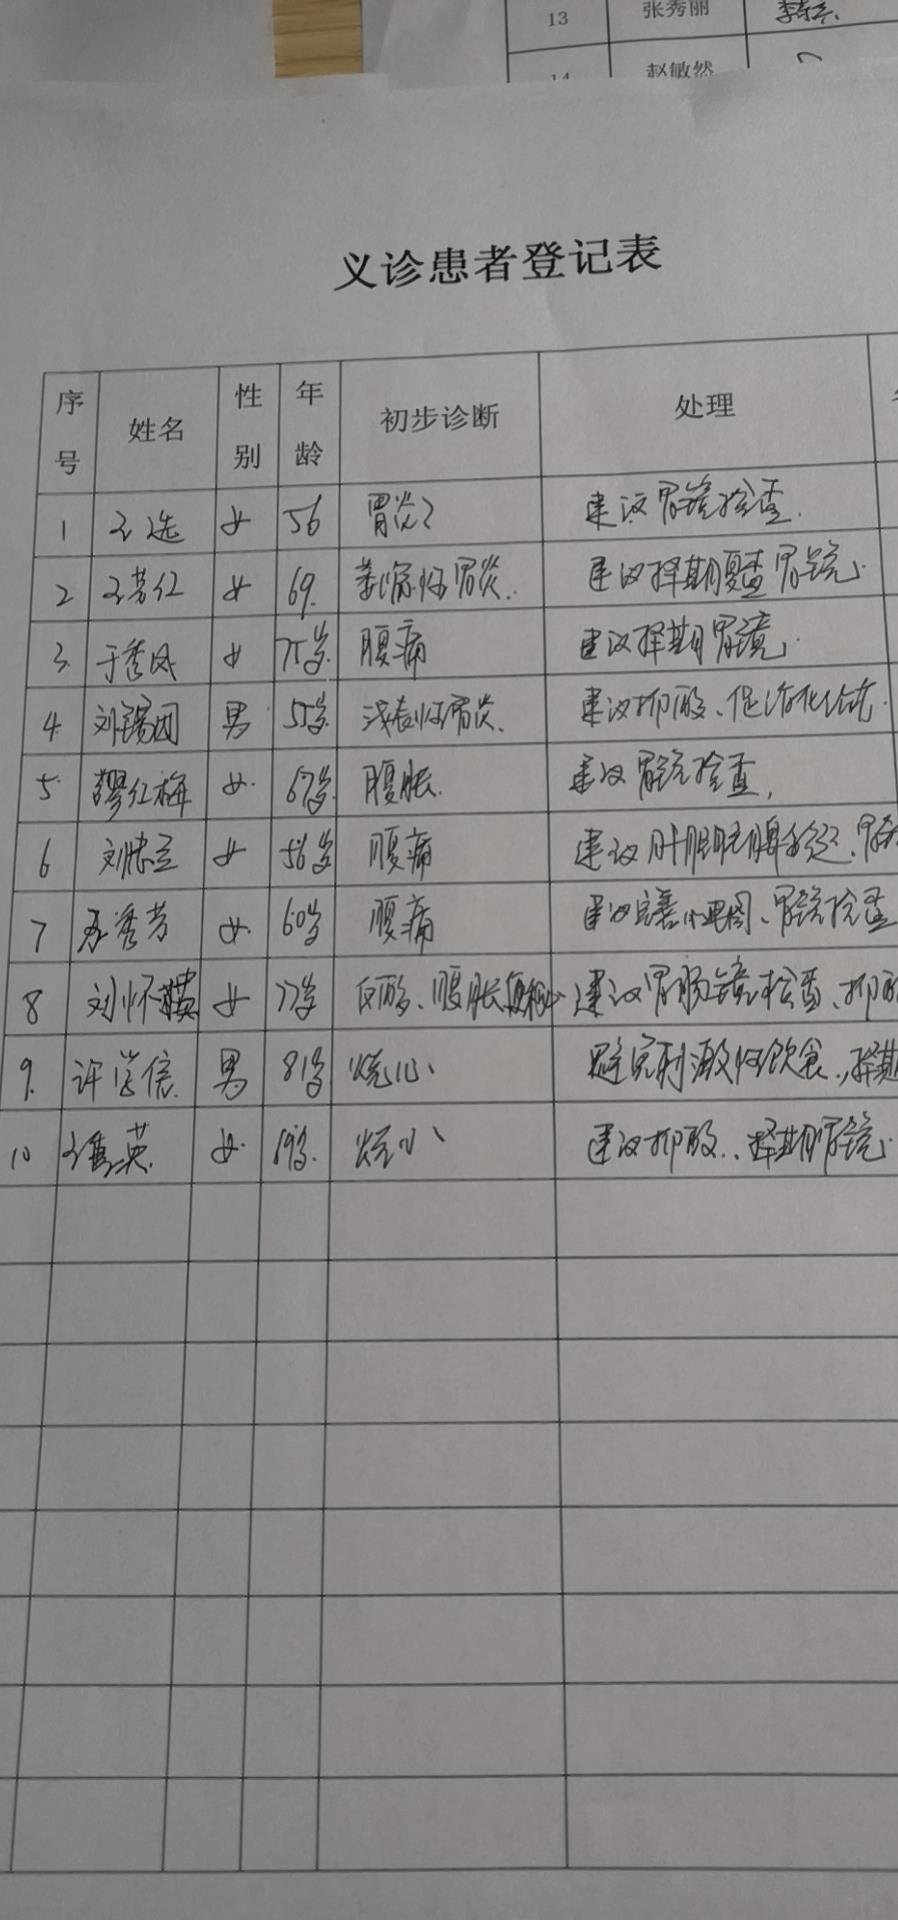 13 张秀丽
14 赵敏然
义诊患者登记表
序号 姓名 性别 年龄 初步诊断 处理
1 王选 女 56 胃炎? 建议胃镜检查.
2 王芳红 女 69. 萎缩性胃炎. 建议择期复查胃镜.
3. 于秀凤 女 75岁. 腹痛 建议择期胃镜.
4. 刘锡因 男 55岁. 浅表性胃炎. 建议抑酸、促消化治疗.
5. 缪红梅 女. 67岁. 腹胀. 建议胃镜检查,
6 刘忠立 女 56岁 腹痛 建议肝胆胰脾彩超、胃
7 秀芳 女. 60岁 腹痛 建议完善心电图、胃镜检查
8 刘怀英 女 77岁 反酸、腹胀、便秘 建议胃肠镜检查、抑酸
9. 许学信 男 81岁 烧心、 避免刺激性饮食、择期
10 英. 女. 69岁. 烧心、 建议抑酸、择期胃镜.